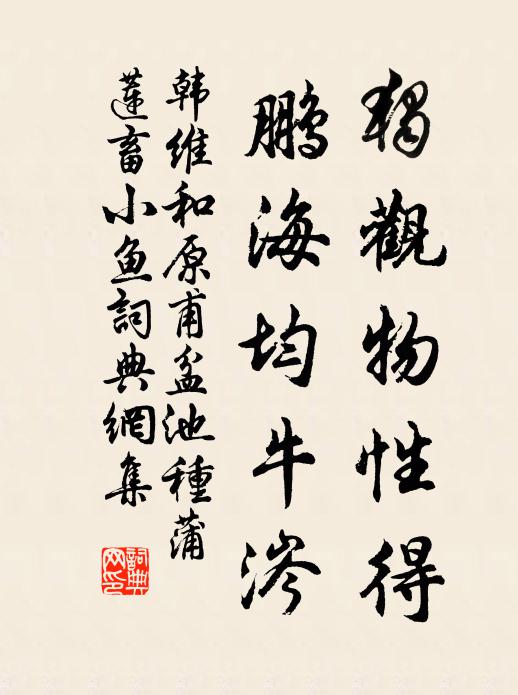 獨觀物性得
鵬海均牛涔
韩維和原甫盆池種蒲
蓮畜小魚詞典網集
詞典网印